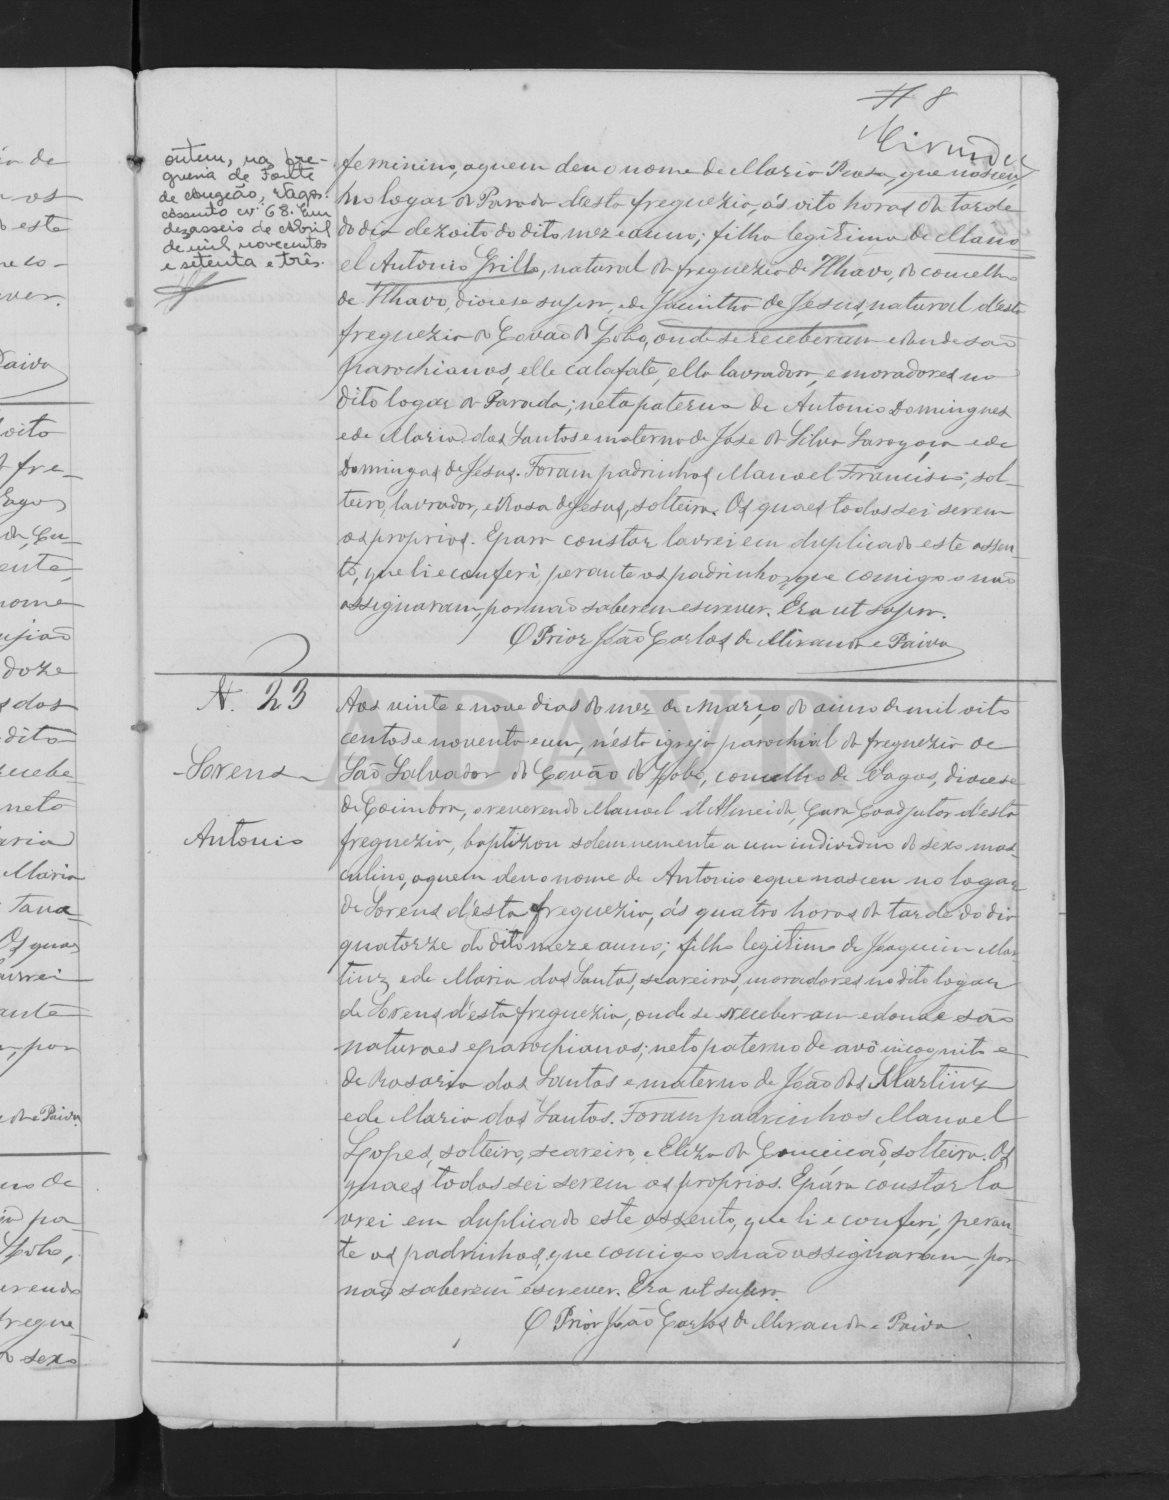 # 8
Miranda
ontem, na fre-
guesia de Fonte
de Angeão, Vagos.
Assento nº 68. Em
dezasseis de Abril
de mil novecentos
e setenta e três.
feminino, a quem deu o nome de Maria Rosa, que nasceu,
no logar da Parada d'esta freguezia, ás oito horas da tarde
do dia dezoito do dito mez e anno; filha legitima de Mano-
el Antonio Grillo, natural da freguezia de Ilhavo, do concelho
de Ilhavo, diocese supra, e de Jacintha de Jesus, natural d'esta
freguezia do Covão do Lobo, onde se receberam e donde são
parochianos, elle calafate, ella lavradora, e moradores no
dito logar da Parada; neta paterna de Antonio Domingues
e de Maria dos Santos e materna de José da Silva Saragoça e de
Domingas de Jesus. Foram padrinhos Manoel Francisco, sol-
teiro, lavrador, e Rosa de Jesus, solteira. Os quaes todos sei serem
os proprios. E para constar lavrei em duplicado este assen-
to, que li e conferi, perante os padrinhos, que comigo o não
assignaram, por não saberem escrever. Era ut supra.
O Prior João Carlos de Miranda e Paiva
N. 23
Aos vinte e nove dias do mez de Março do anno de mil oito
centos e noventa e um, n'esta igreja parochial da freguezia de
Lorens
São Salvador do Covão do Lobo, concelho de Vagos, diocese
de Coimbra, o reverendo Manoel d'Almeida, Cura Coadjutor d'esta
Antonio
freguezia, baptizou solemnemente a um individuo do sexo mas-
culino, a quem deu o nome de Antonio e que nasceu no logar
de Lorens d'esta freguezia, ás quatro horas da tarde do dia
quatorze do dito mez e anno; filho legitimo de Joaquim Mar-
tinz e de Maria dos Santos, seareiros, moradores no dito logar
de Lorens d'esta freguezia, onde se receberam e donde são
naturaes e parochianos; neto paterno de avô incognito e
de Rosaria dos Santos e materno de João dos Martinz
e de Maria dos Santos. Foram padrinhos Manoel
Lopes, solteiro, seareiro, e Eliza da Conceicão, solteira. Os
quaes todos sei serem os proprios. E pára constar la-
vrei em duplicado este assento, que li e conferi, peran-
te os padrinhos, que comigo o não assignaram, por
não saberem escrever. Era ut supra.
O Prior João Carlos de Miranda e Paiva
ADAVR